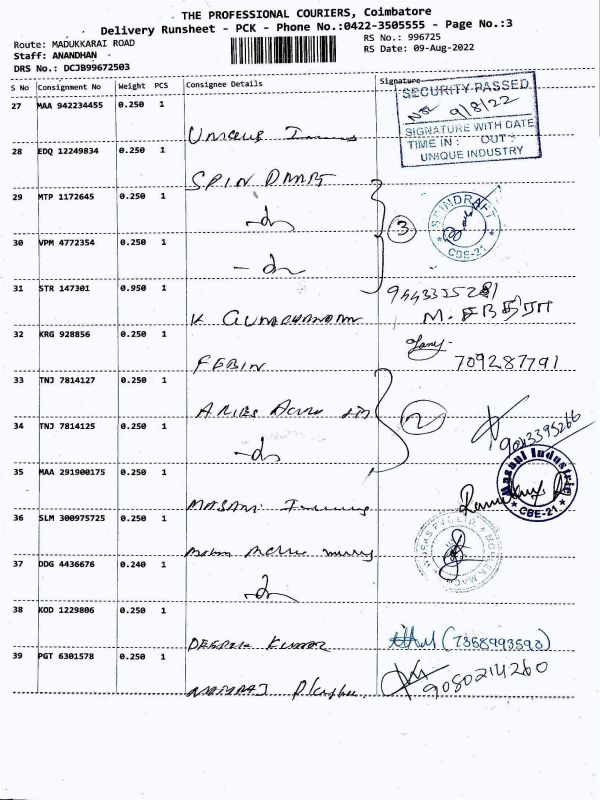 THE PROFESSIONAL COURIERS, Coimbatore
Delivery Runsheet - PCK - Phone No.:0422-3505555 - Page No.:3
Route: MADUKKARAI ROAD
RS No.: 996725
Staff: ANANDHAN
RS Date: 09-Aug-2022
DRS No.: DCJB99672503
S No Consignment No Weight PCS Consignee Details Signature
27 MAA 942234455 0.250 1
SECURITY PASSED
9/8/22
SIGNATURE WITH DATE
TIME IN : OUT :
UNIQUE INDUSTRY
28 EDQ 12249834 0.250 1
SPIN DRAFT
29 MTP 1172645 0.250 1
SPINDRAFT
CBE-21
3
30 VPM 4772354 0.250 1
31 STR 147301 0.950 1
K GUNACHANDRAN
M. சபதிரா
32 KRG 928856 0.250 1
FEBIN
709287791
33 TNJ 7814127 0.250 1
ARIES
2
34 TNJ 7814125 0.250 1
9043395266
35 MAA 291900175 0.250 1
MASANI
Masani Industries
CBE-21
36 SLM 300975725 0.250 1
37 DDG 4436676 0.240 1
38 KOD 1229806 0.250 1
DEEPAK KUMAR
(7368993590)
39 PGT 6301578 0.250 1
NATARAJ
9080214260